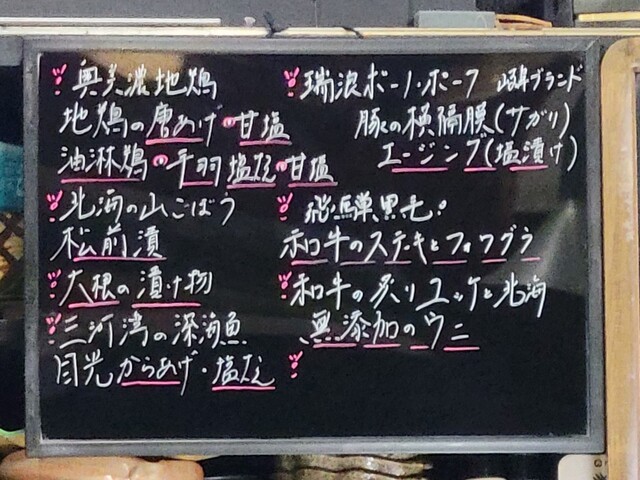 奥美濃地鶏
地鶏の唐あげ・甘塩
油淋鶏・手羽塩焼・甘塩
北海の山ごぼう
松前漬
大根の漬け物
三河湾の深海魚
目光からあげ・塩焼
瑞浪ボーノ・ポーク 岐阜ブランド
豚の横隔膜(サガリ)
エージング(塩漬け)
飛騨黒毛
和牛のステキとフォワグラ
和牛の炙りユッケと北海
無添加のウニ